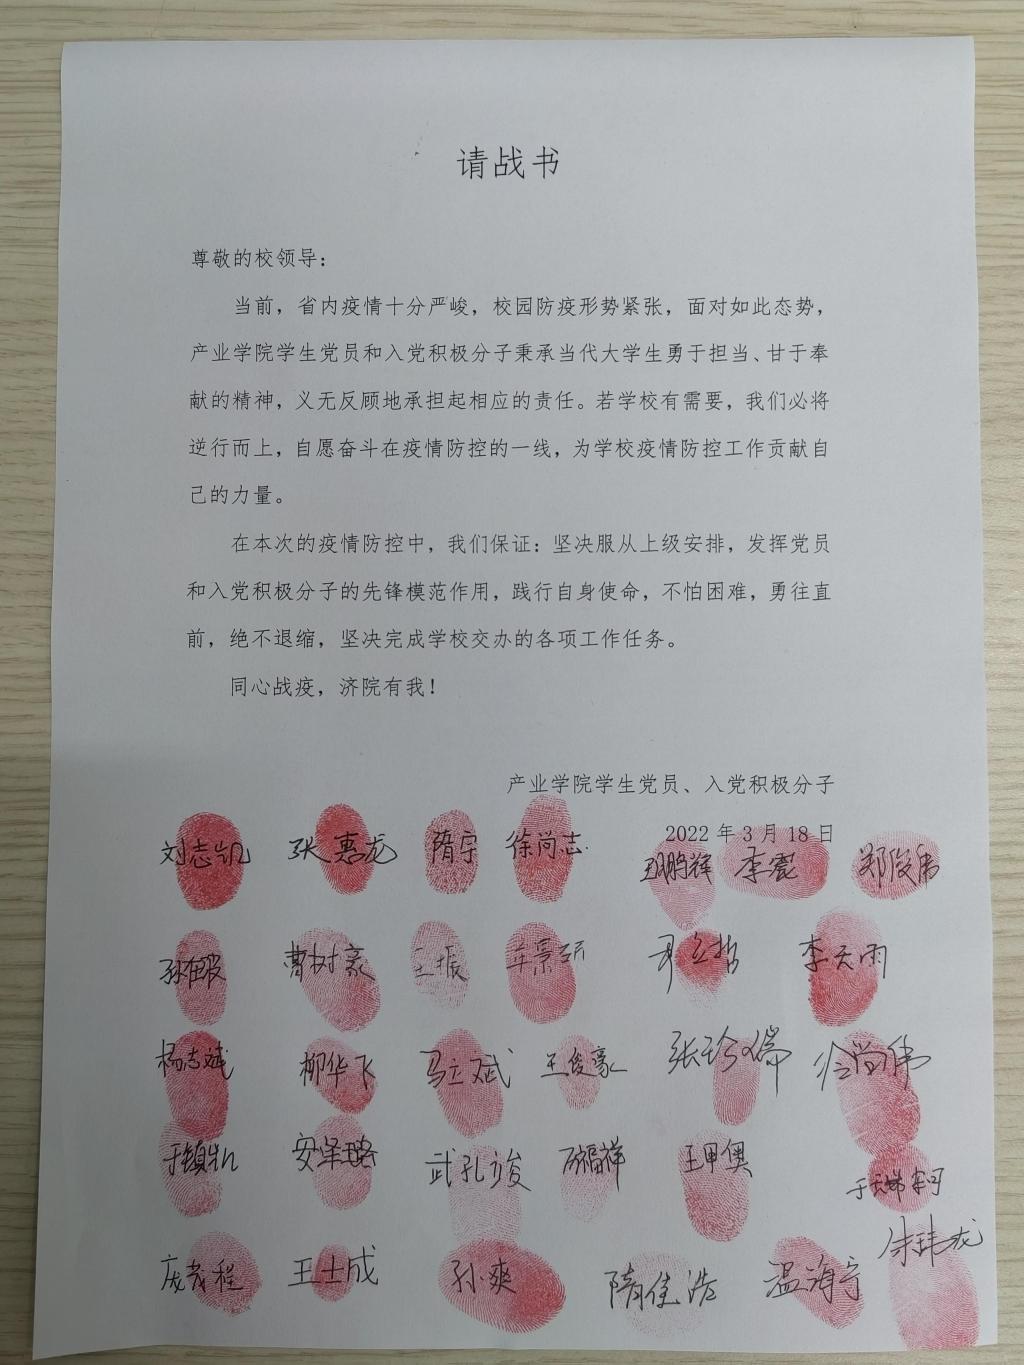 请战书
尊敬的校领导：
当前，省内疫情十分严峻，校园防疫形势紧张，面对如此态势，
产业学院学生党员和入党积极分子秉承当代大学生勇于担当、甘于奉
献的精神，义无反顾地承担起相应的责任。若学校有需要，我们必将
逆行而上，自愿奋斗在疫情防控的一线，为学校疫情防控工作贡献自
己的力量。
在本次的疫情防控中，我们保证：坚决服从上级安排，发挥党员
和入党积极分子的先锋模范作用，践行自身使命，不怕困难，勇往直
前，绝不退缩，坚决完成学校交办的各项工作任务。
同心战疫，济院有我！
产业学院学生党员、入党积极分子
2022 年 3 月 18 日
刘志凯 张惠龙 隋宁 徐尚志 李震 郑俊伟
曹树豪 王振 车景研 尹立哲 李天雨
杨志斌 柳华飞 马立斌 王俊豪 徐尚伟
于镇凯 安泽璐 武孔俊 王甲奥
庞茂程 王士成 孙爽 隋佳浩 温海宁 朱玮龙